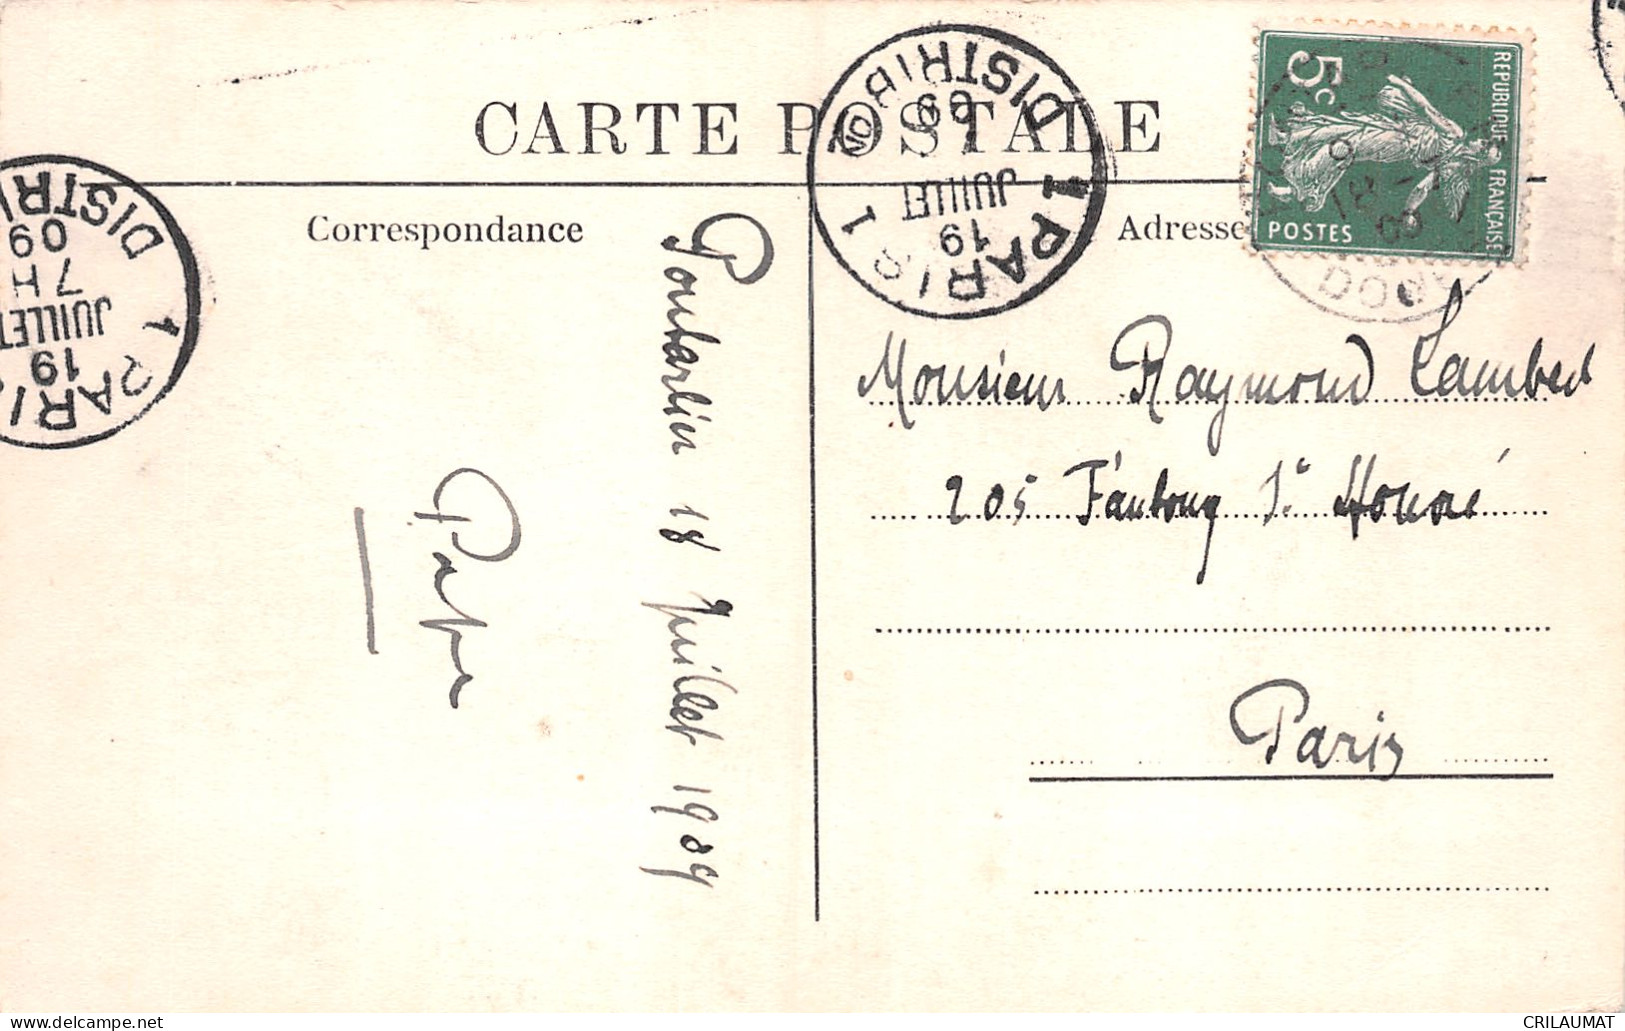 CARTE POSTALE
Correspondance
Adresse
REPUBLIQUE FRANÇAISE
5c
POSTES
PARIS 1
DISTRIBON
19
JUILLET
09
PARIS
DISTRI
19
JUILLET
7H
09
Pontarlier 18 Juillet 1909
Papa
Monsieur Raymond Lambert
205 Faubourg St Honoré
Paris
CRILAUMAT